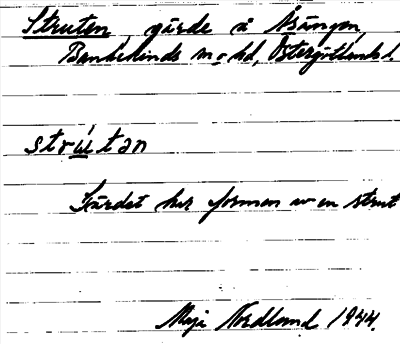 Struten, gärde å Åsången,
Bankekinds sn o. hd, Östergötlands l.
strú̱tən
Gärdet har formen av en strut
Maja Nordlund 1944.